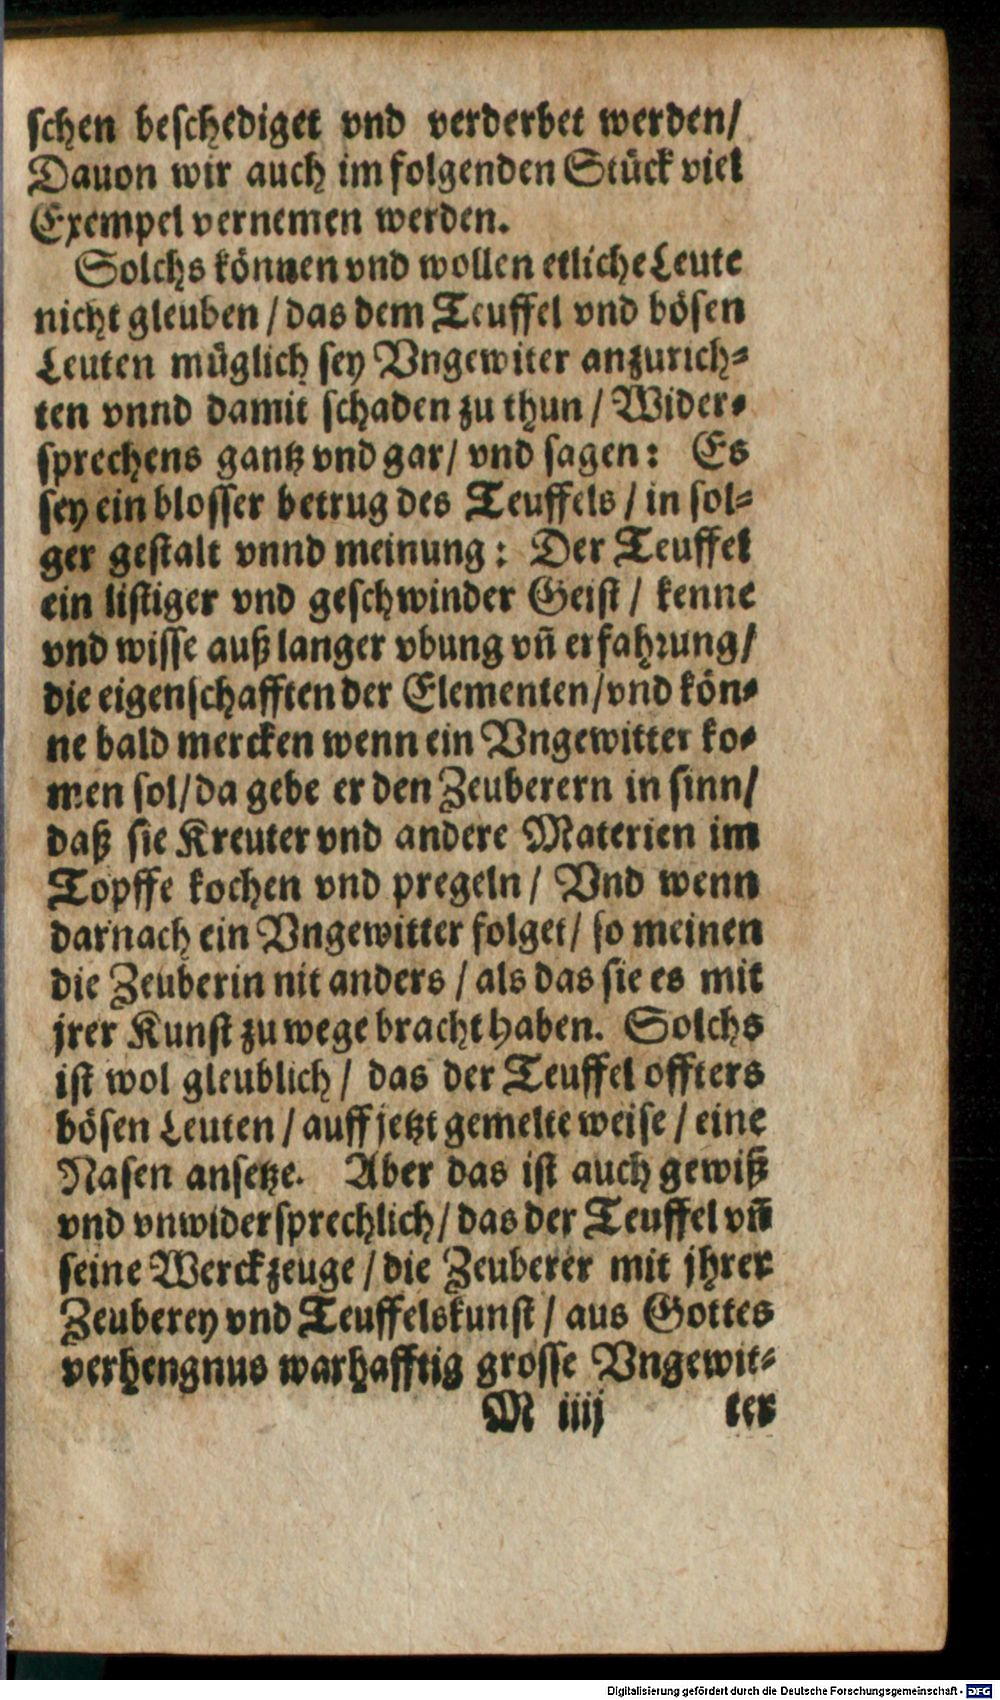 schen beschediget vnd verderbet werden/
Dauon wir auch im folgenden Stück viel
Exempel vernemen werden.
Solchs können vnd wollen etliche Leute
nicht gleuben / das dem Teuffel vnd bösen
Leuten müglich sey Vngewiter anzurich⸗
ten vnnd damit schaden zu thun / Wider⸗
sprechens gantz vnd gar/ vnd sagen: Es
sey ein blosser betrug des Teuffels / in sol⸗
ger gestalt vnnd meinung: Der Teuffel
ein listiger vnd geschwinder Geist / kenne
vnd wisse auß langer vbung vn̄ erfahrung/
die eigenschafften der Elementen/vnd kön⸗
ne bald mercken wenn ein Vngewitter ko⸗
men sol/da gebe er den Zeuberern in sinn/
daß sie Kreuter vnd andere Materien im
Topffe kochen vnd pregeln/ Vnd wenn
darnach ein Vngewitter folget/ so meinen
die Zeuberin nit anders / als das sie es mit
jrer Kunst zu wege bracht haben. Solchs
ist wol gleublich/ das der Teuffel offters
bösen Leuten / auff jetzt gemelte weise / eine
Nasen ansetze. Aber das ist auch gewiß
vnd vnwidersprechlich/ das der Teuffel vn̄
seine Werckzeuge / die Zeuberer mit jhrer
Zeuberey vnd Teuffelskunst / aus Gottes
verhengnus warhafftig grosse Vngewit⸗
M iiij ter
Digitalisierung gefördert durch die Deutsche Forschungsgemeinschaft - DFG